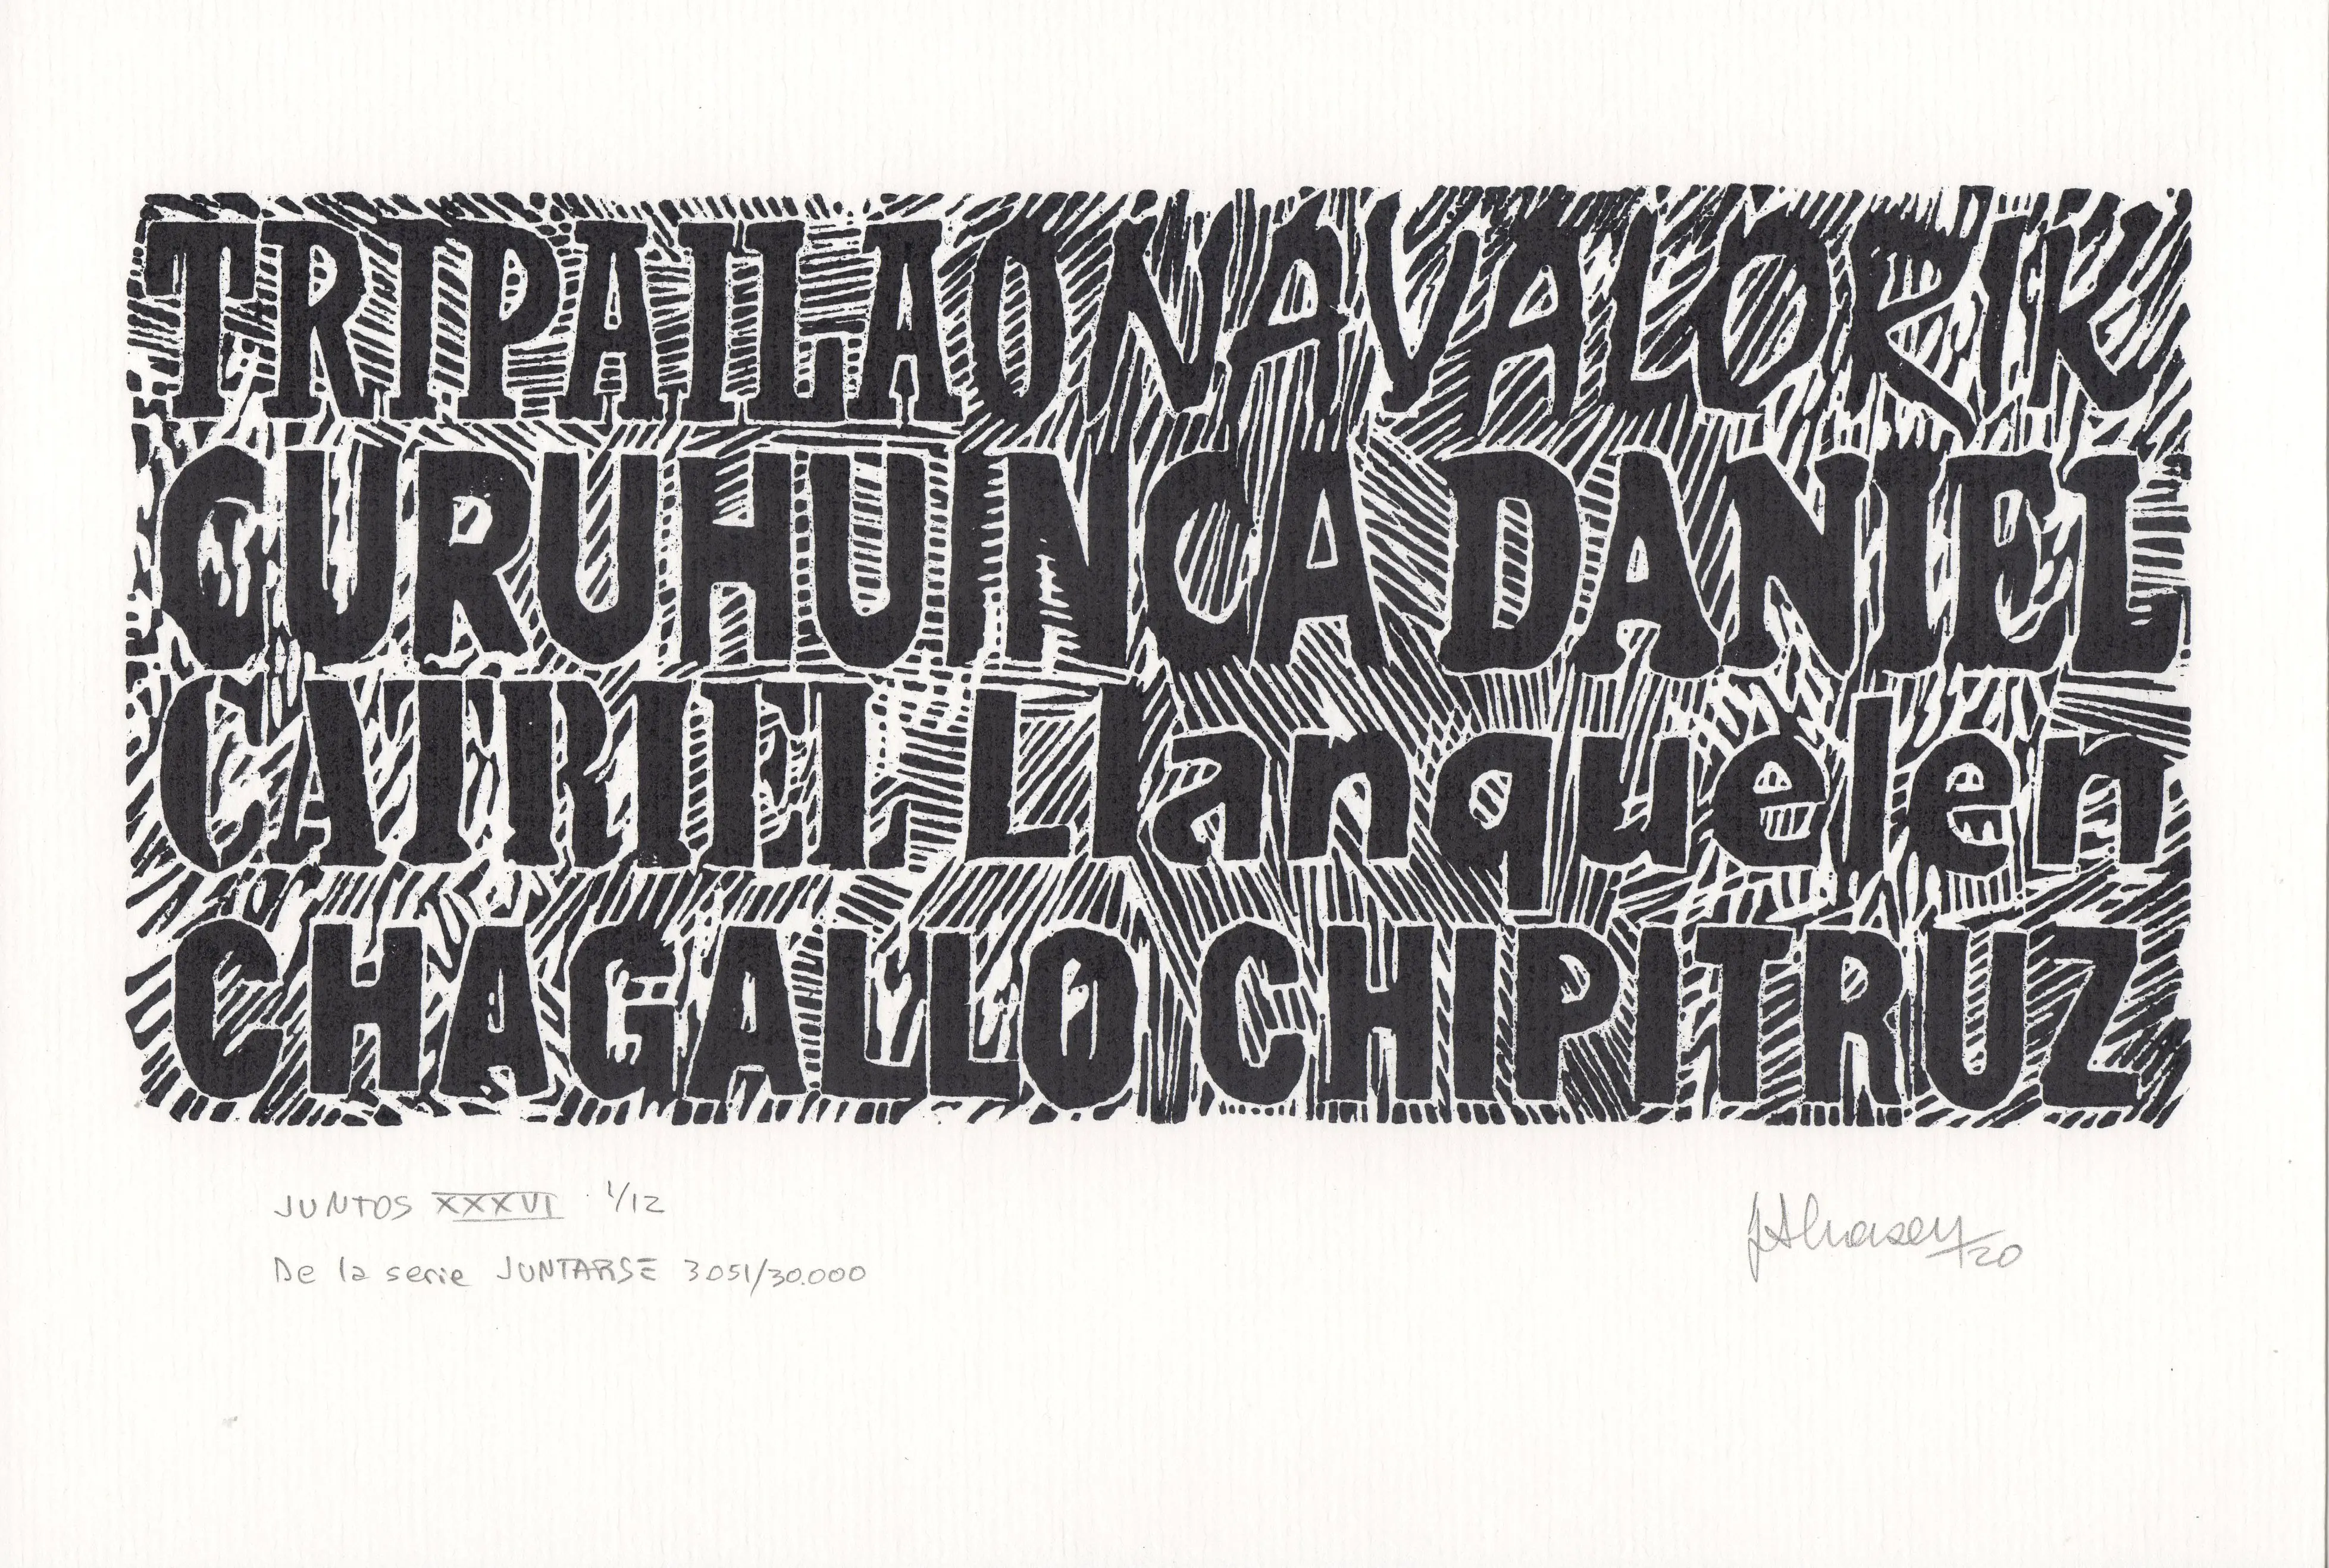 TRIPAILAO NAVALORIK
CURUHUINCA DANIEL
CATRIEL Llanquelen
CHAGALLO CHIPITRUZ
JUNTOS XXXVI 1/12
De la serie JUNTARSE 3051/30.000
/20